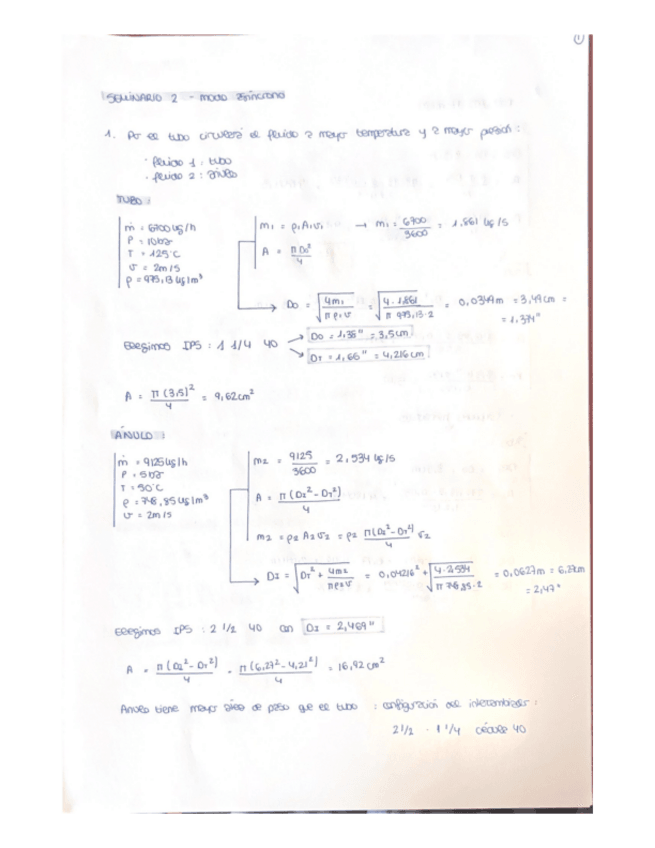 1
SEMINARIO 2 - modo asíncrono
1. Por el tubo circulará el fluido a mayor temperatura y a mayor presión:
· fluido 1: tubo
· fluido 2: ánulo
TUBO:
ṁ = 6700 kg/h
P = 10 bar
T = 125°C
v = 2m/s
ρ = 973,13 kg/m³
m₁ = ρ₁A₁v₁ → m₁ = 6700/3600 = 1,861 kg/s
A = π Do²/4
Do = √(4m₁/π ρ₁v) = √(4·1,861/π 973,13·2) = 0,0349m = 3,49cm =
= 1,374"
Elegimos IPS: 1 1/4 40
Do = 1,38" = 3,5cm
DT = 1,66" = 4,216cm
A = π(3,5)²/4 = 9,62cm²
ÁNULO:
ṁ = 9125 kg/h
P = 5 bar
T = 50°C
ρ = 748,85 kg/m³
v = 2m/s
m₂ = 9125/3600 = 2,534 kg/s
A = π(D₂²-DT²)/4
m₂ = ρ₂A₂v₂ = ρ₂ π(D₂²-DT²)/4 v₂
D₂ = √(DT² + 4m₂/πρ₂v) = 0,04216² + √(4·2,534/π 748,85·2) = 0,0627m = 6,27cm
= 2,47"
Elegimos IPS: 2 1/2 40 con D₂ = 2,469"
A = π(D₂²-DT²)/4 = π(6,27²-4,21²)/4 = 16,92 cm²
Ánulo tiene mayor área de paso que el tubo : configuración del intercambiador:
2 1/2 · 1 1/4 cédula 40